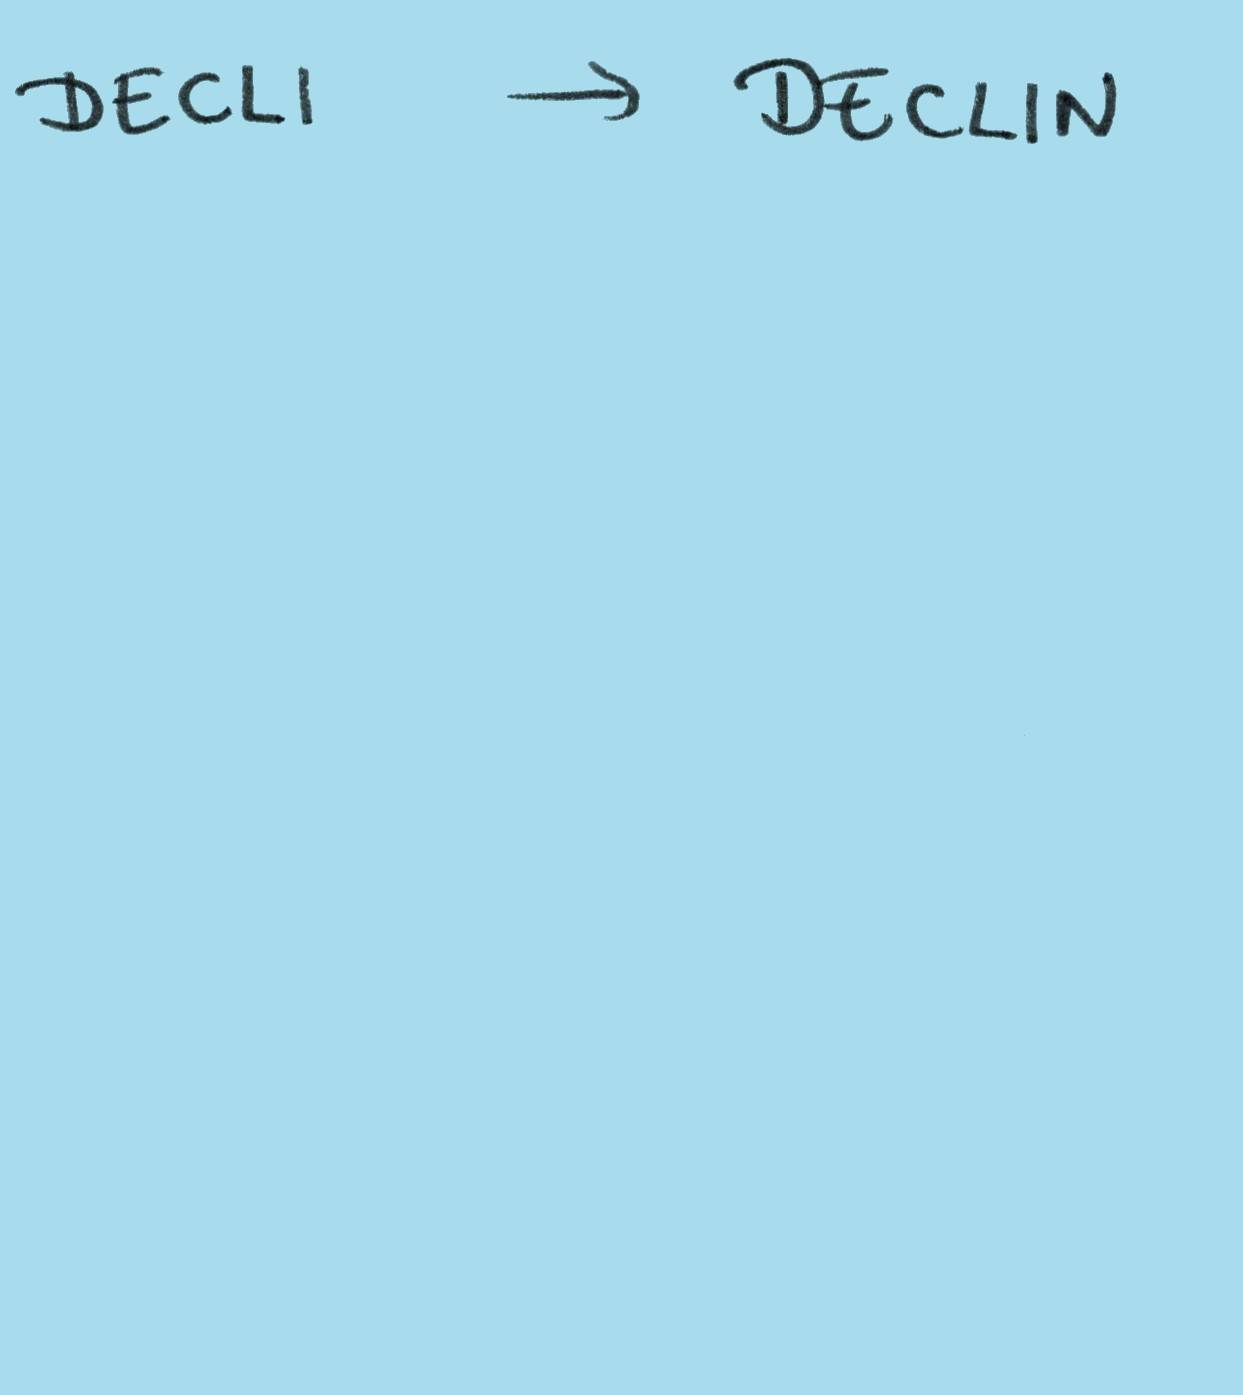 DECLI → DECLIN